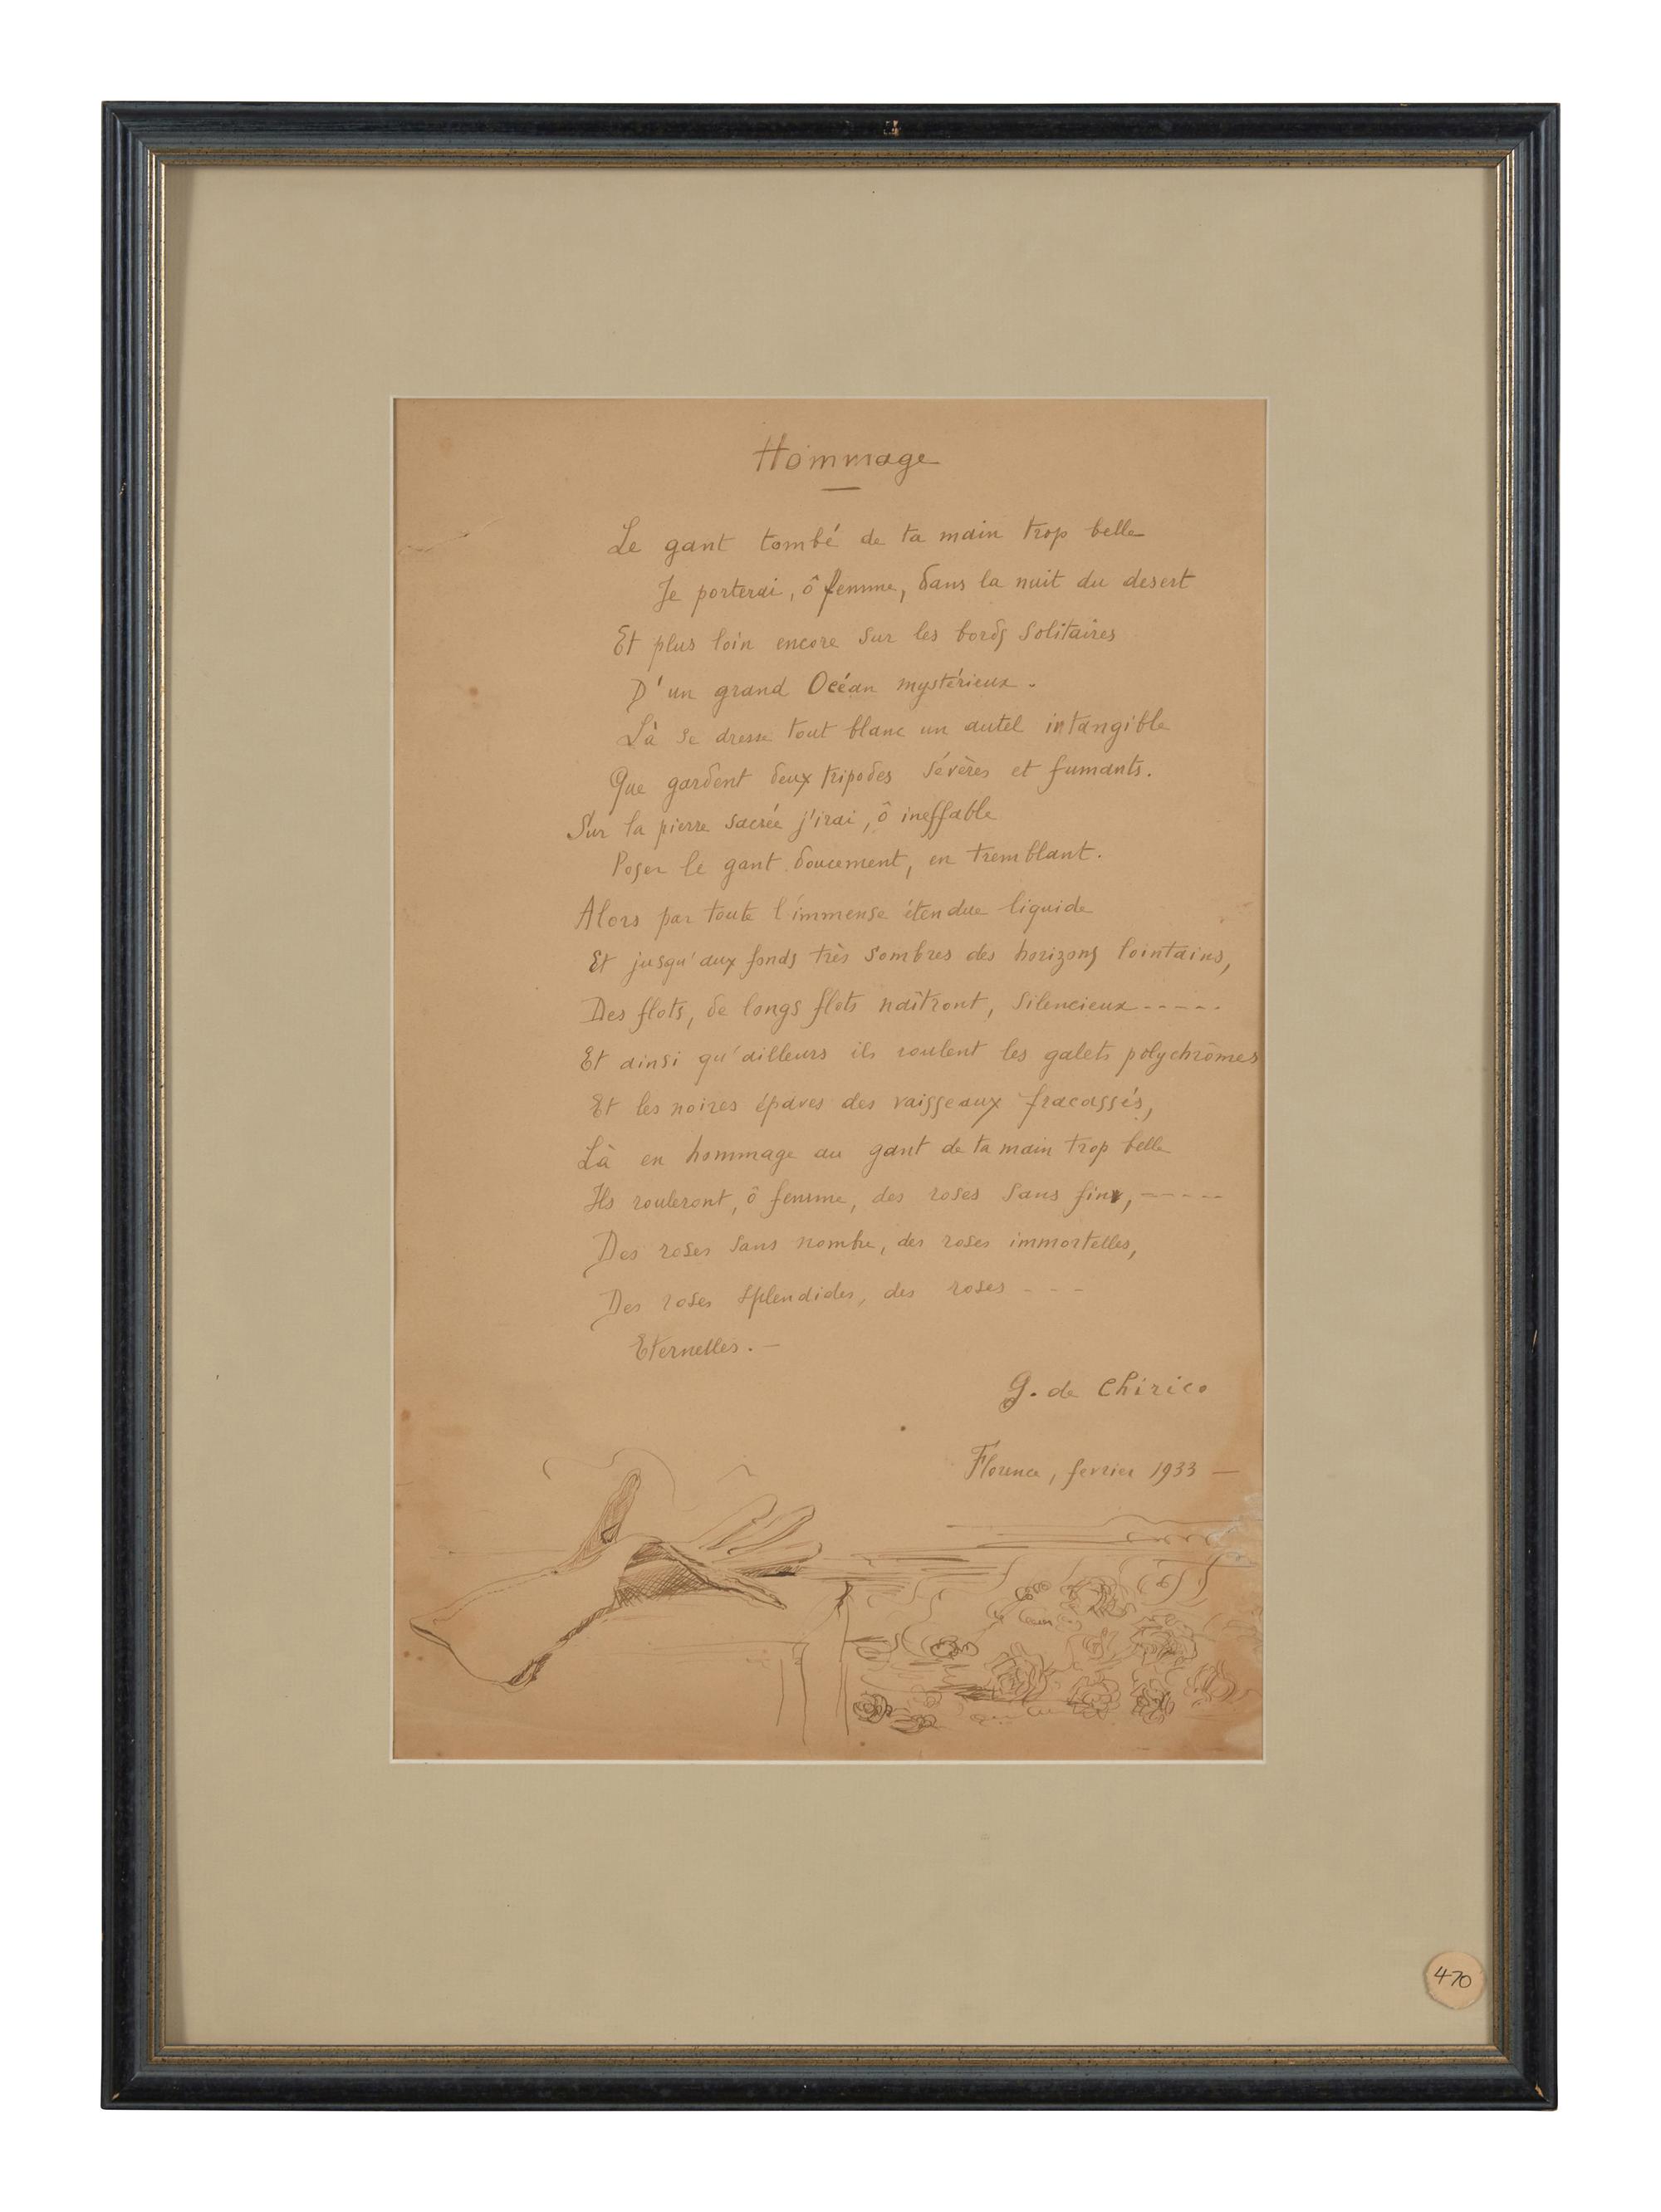 Hommage
Le gant tombé de ta main trop belle
Je porterai, ô femme, dans la nuit du desert
Et plus loin encore sur les bords solitaires
D'un grand Océan mystérieux.
Là se dresse tout blanc un autel intangible
Que gardent deux tripodes sévères et fumants.
Sur la pierre sacrée j'irai, ô ineffable
Poser le gant doucement, en tremblant.
Alors par toute l'immense étendue liquide
Et jusqu'aux fonds très sombres des horizons lointains,
Des flots, de longs flots naîtront, silencieux-----
Et ainsi qu'ailleurs ils roulent les galets polychrômes
Et les noires épaves des vaisseaux fracassés,
Là en hommage au gant de ta main trop belle
Ils rouleront, ô femme, des roses sans fin, -----
Des roses sans nombre, des roses immortelles,
Des roses splendides, des roses ---
Eternelles. —
G. de Chirico
Florence, fevrier 1933 —
470